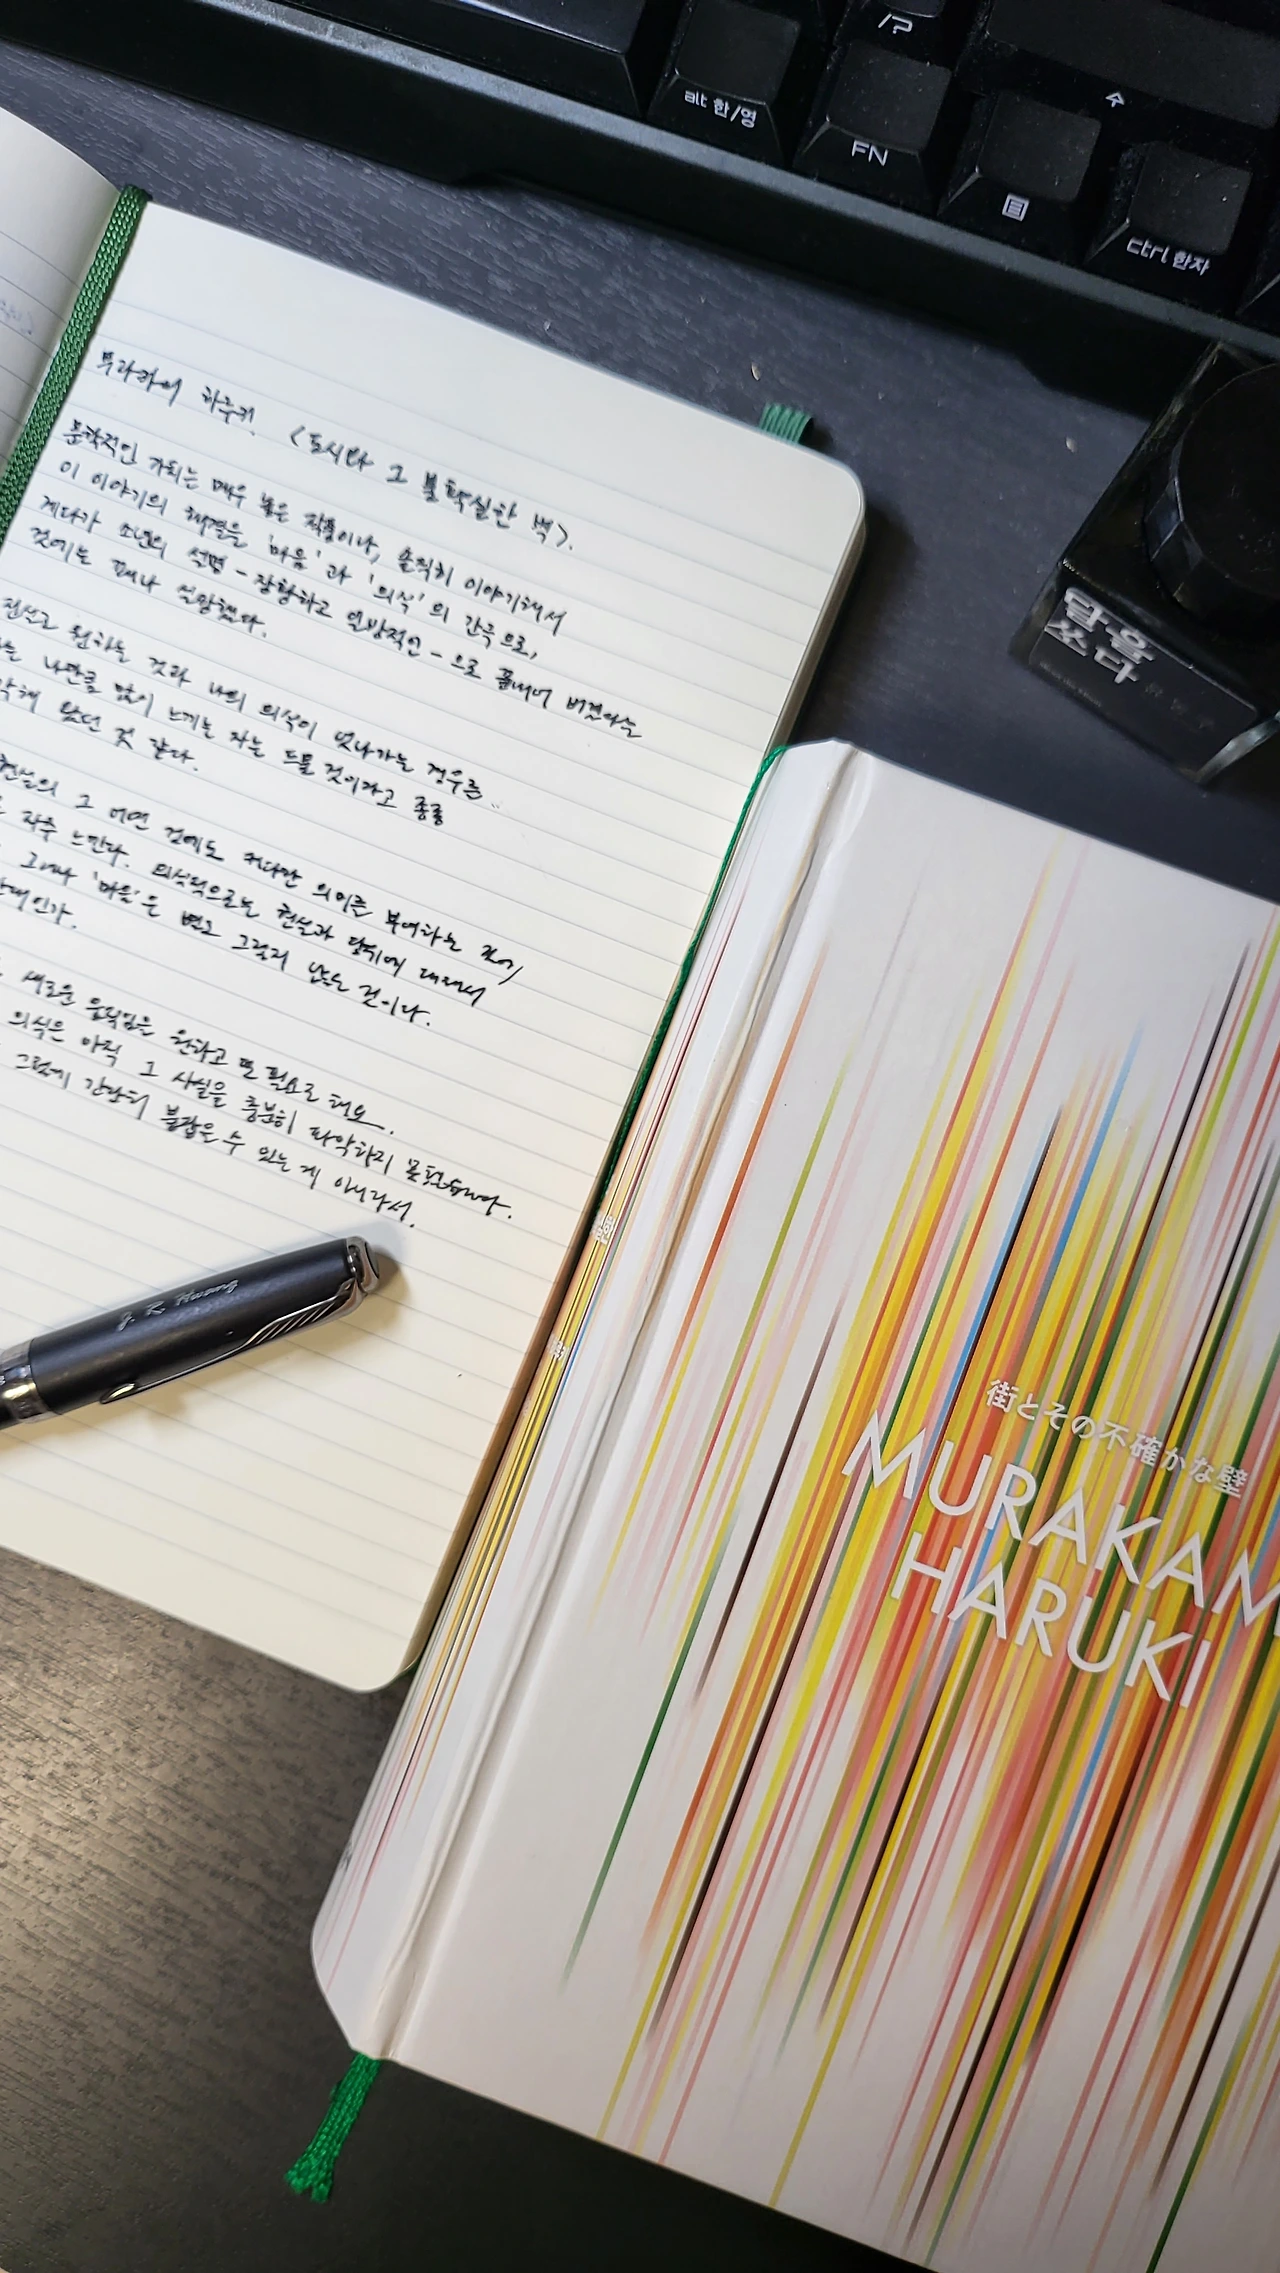 /?
alt 한/영
FN
ctrl 한자
무라카미 하루키. <도시와 그 불확실한 벽>.
문학적인 가치는 매우 높은 작품이나, 솔직히 이야기해서
이 이야기의 해결을 '마음'과 '의식'의 간극으로,
게다가 소년의 설명 - 장황하고 일방적인 - 으로 끝내어 버렸다는
것에는 꽤나 실망했다.
원하는 것과 나의 의식이 엇나가는 경우를..
나만큼 많이 느끼는 자는 드물 것이라고 종종
왔던 것 같다.
현실의 그 어떤 것에도 커다란 의미를 부여하는 것이,
자주 느낀다. 의식적으로는 현실과 맞춰에
그러나 '마음'은 변고 그렇지 않는 것이다.
새로운 움직임을 원하고 또 필요로 해요.
의식은 아직 그 사실을 충분히 파악하지 못했습니다.
그렇게 간단히 붙잡을 수 있는 게 아니라서.
J. R. Hwang
담을
쓰다
街とその不確かな壁
MURAKAM
HARUKI